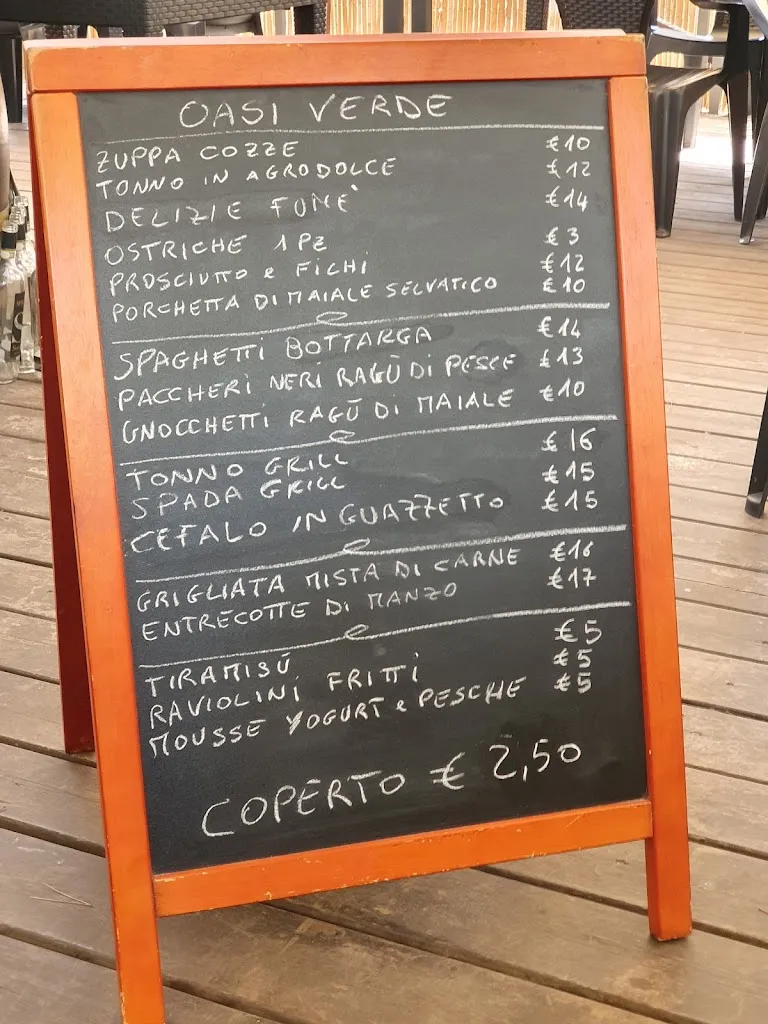 OASI VERDE
ZUPPA COZZE €10
TONNO IN AGRODOLCE €12
DELIZIE FUMÈ €14
OSTRICHE 1 PZ €3
PROSCIUTTO e FICHI €12
PORCHETTA DI MAIALE SELVATICO €10
SPAGHETTI BOTTARGA €14
PACCHERI NERI RAGÙ DI PESCE €13
GNOCCHETTI RAGÙ DI MAIALE €10
TONNO GRILL €16
SPADA GRILL €15
CEFALO IN GUAZZETTO €15
GRIGLIATA MISTA DI CARNE €16
ENTRECOTTE DI MANZO €17
TIRAMISÙ €5
RAVIOLINI FRITTI €5
MOUSSE YOGURT e PESCHE €5
COPERTO € 2,50